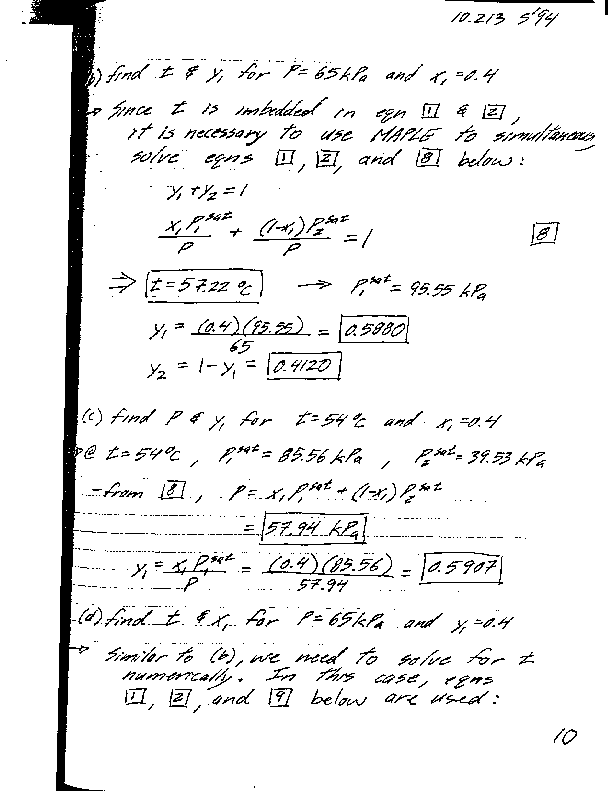 10.213 S'94
b) find t & y₁ for P=65kPa and x₁=0.4
→ Since t is imbedded in eqn [1] & [2],
it is necessary to use MAPLE to simultaneous
solve eqns [1], [2], and [8] below:
y₁+y₂=1
x₁P₁ˢᵃᵗ/P + (1-x₁)P₂ˢᵃᵗ/P = 1 [8]
⇒ t=57.22 °C → P₁ˢᵃᵗ = 95.55 kPa
y₁ = (0.4)(95.55)/65 = 0.5880
y₂ = 1-y₁ = 0.4120
(c) find P & y₁ for t=54°C and x₁=0.4
→ @ t=54°C, P₁ˢᵃᵗ=85.56 kPa, P₂ˢᵃᵗ=39.53 kPa
-from [8], P= x₁P₁ˢᵃᵗ+(1-x₁)P₂ˢᵃᵗ
= 57.94 kPa
y₁= x₁P₁ˢᵃᵗ/P = (0.4)(85.56)/57.94 = 0.5907
(d) find t & x₁ for P=65kPa and y₁=0.4
→ Similar to (b), we need to solve for t
numerically. In this case, eqns
[1], [2], and [9] below are used:
10